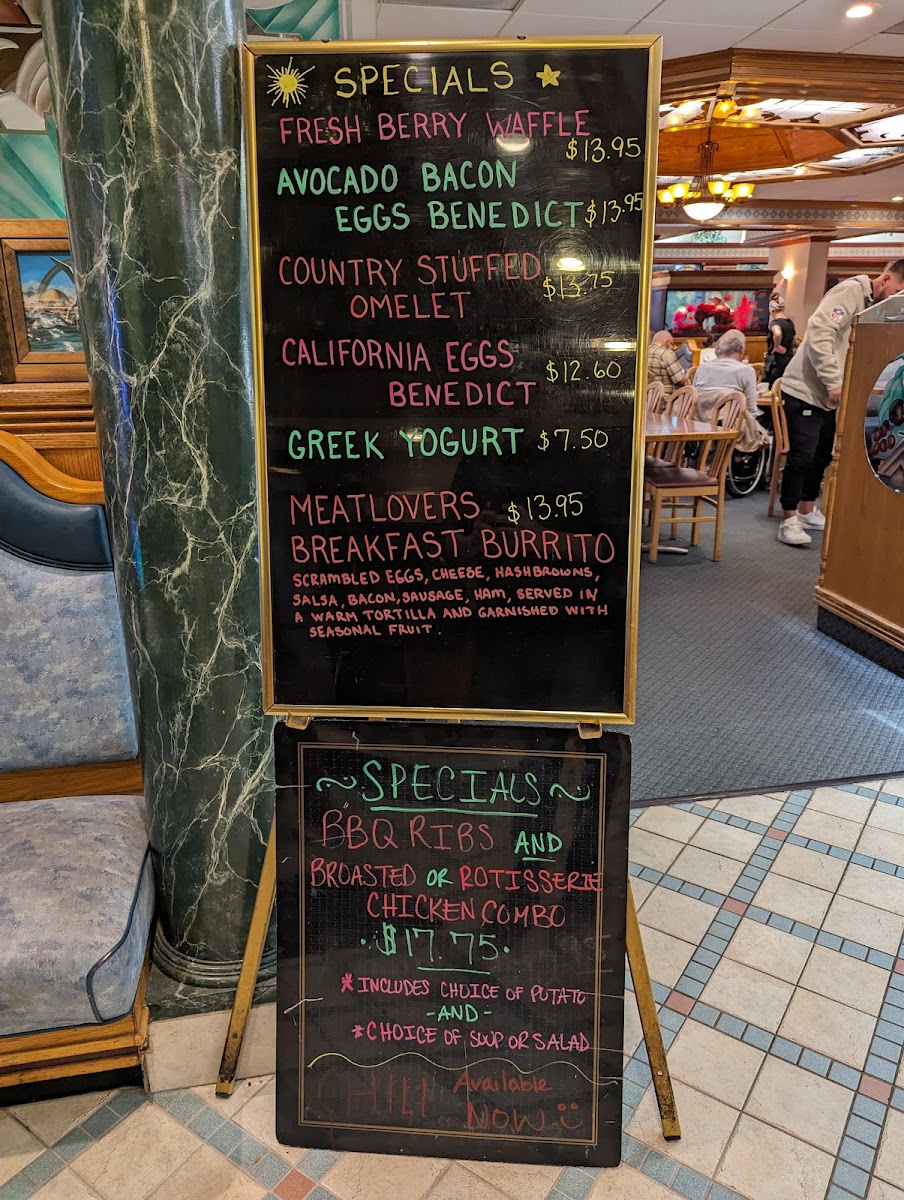 SPECIALS
FRESH BERRY WAFFLE
$13.95
AVOCADO BACON
EGGS BENEDICT $13.95
COUNTRY STUFFED $13.75
OMELET
CALIFORNIA EGGS $12.60
BENEDICT
GREEK YOGURT $7.50
MEATLOVERS $13.95
BREAKFAST BURRITO
SCRAMBLED EGGS, CHEESE, HASHBROWNS,
SALSA, BACON, SAUSAGE, HAM, SERVED IN
A WARM TORTILLA AND GARNISHED WITH
SEASONAL FRUIT.
~SPECIALS~
BBQ RIBS AND
BROASTED OR ROTISSERIE
CHICKEN COMBO
·$17.75·
*INCLUDES CHOICE OF POTATO
-AND-
*CHOICE OF SOUP OR SALAD
CHILI Available
NOW